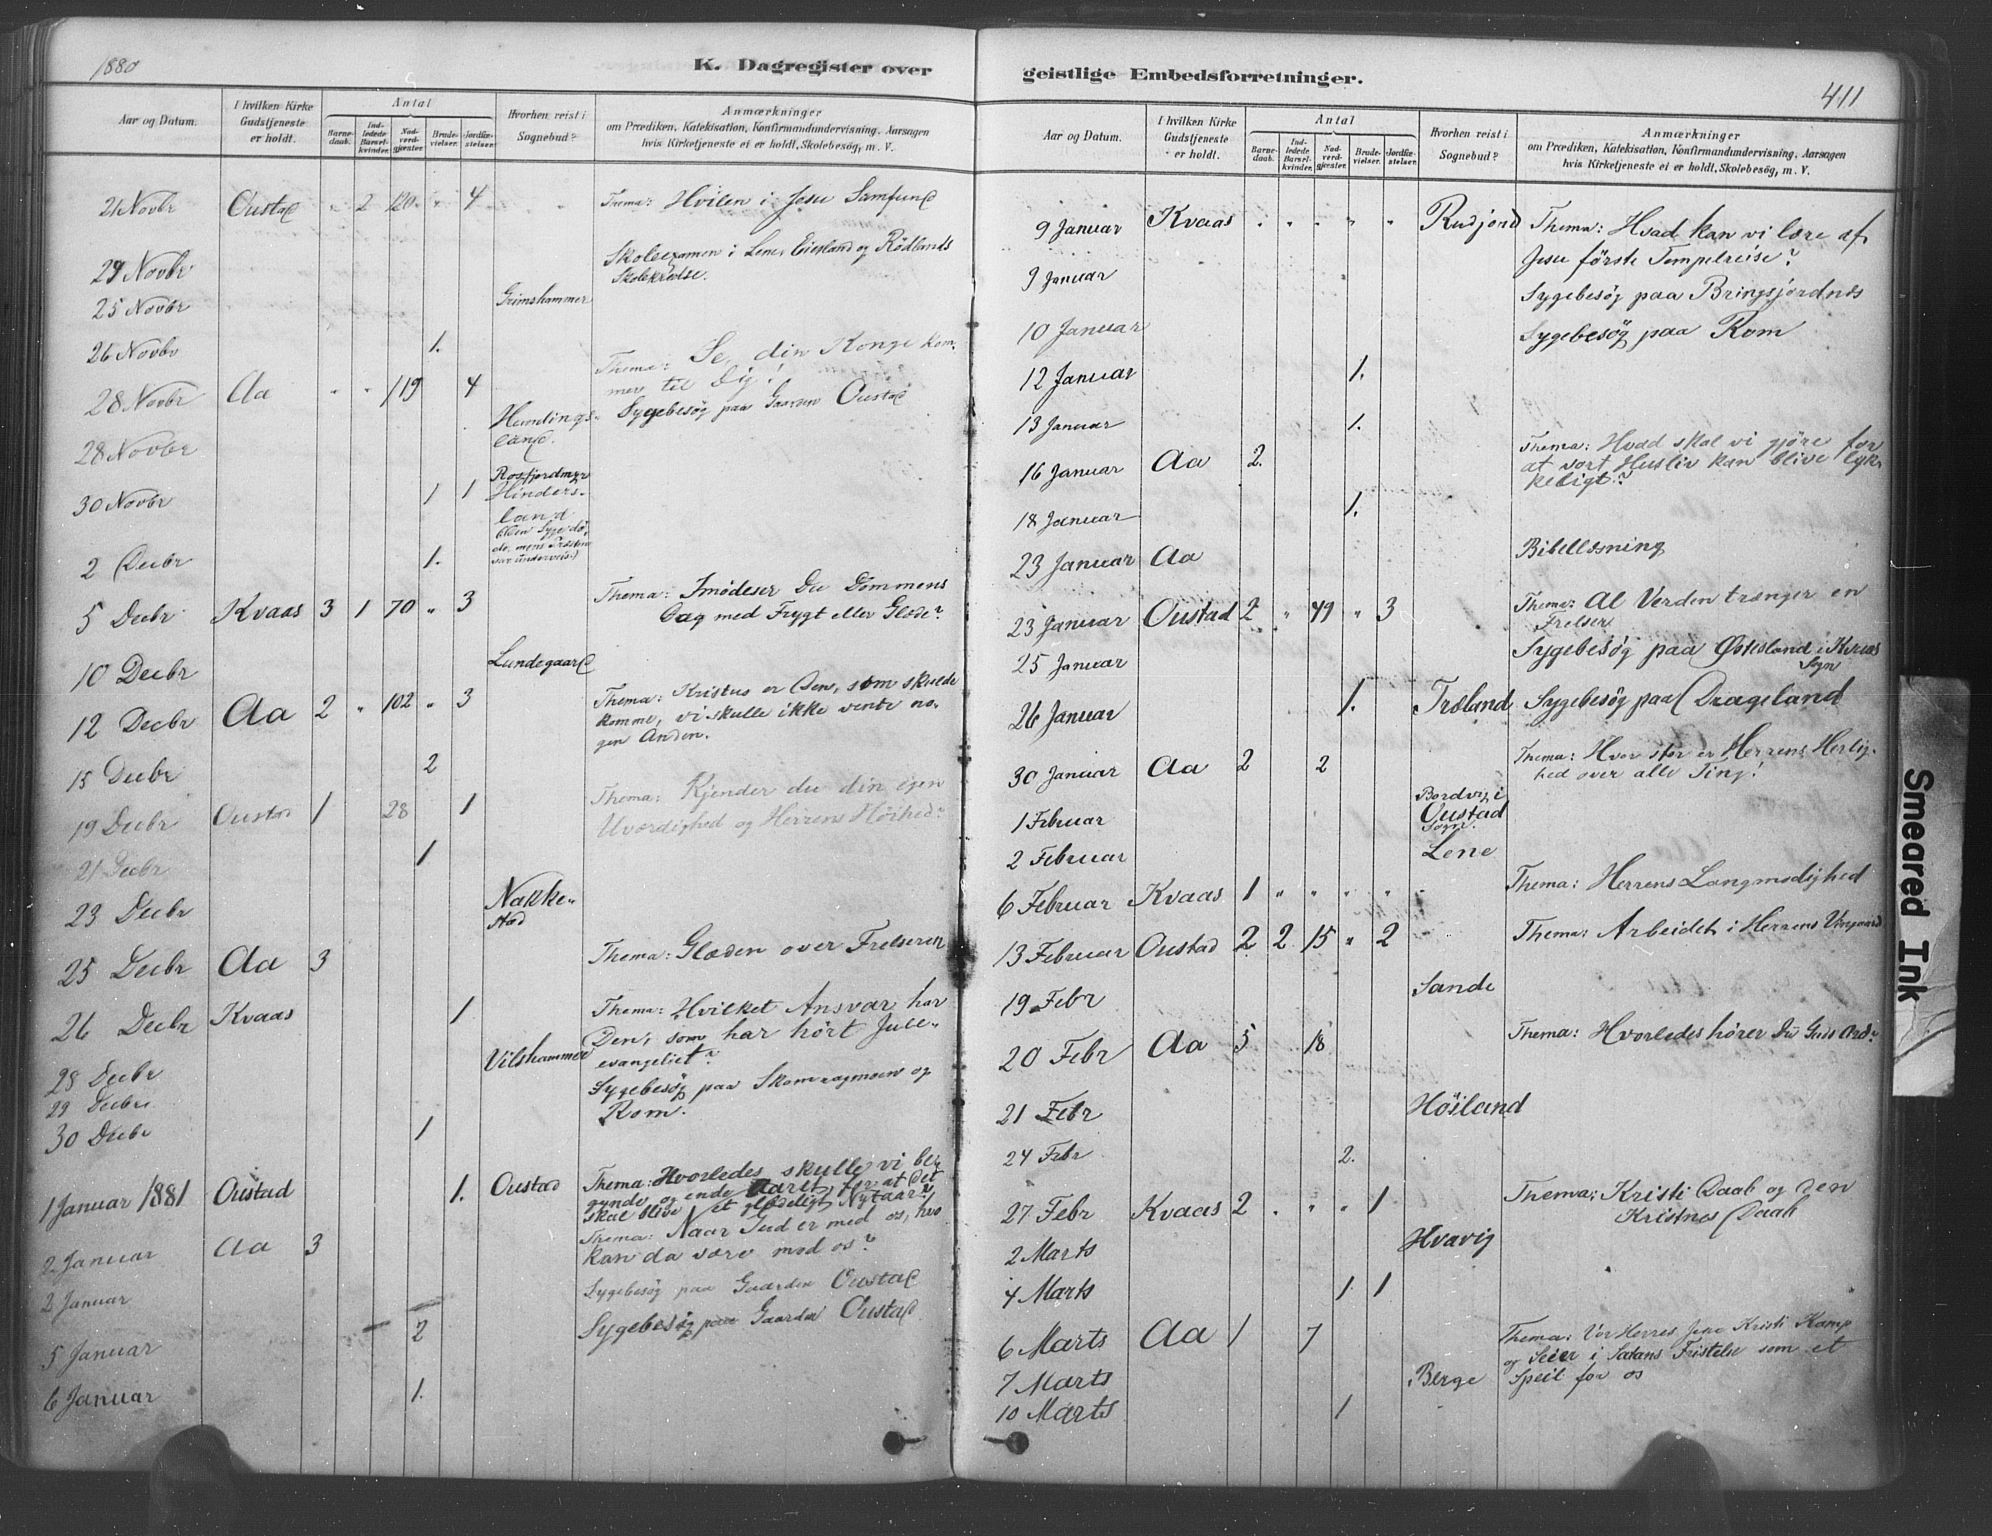 1880
K. Dagregister over
Aar og Datum.
I hvilken Kirke
Gudstjeneste
er holdt.
Antal
Barne-
daab.
Ind-
ledede
Barsel-
kvinder.
Nad-
verd-
gjæster.
Brude-
vielser.
Jordfæ-
stelser.
Hvorhen reist i
Sognebud?
Anmærkninger
om Prædiken, Katekisation, Konfirmandundervisning, Aarsagen
hvis Kirketjeneste ei er holdt, Skolebesøg, m. V.
21 Novbr Oustad " 2 120 " 4 Thema: Hvilen i Jesu Samfund
Skoleexamen i Lene, Eiesland og Rødlands
24 Novbr Skolekredse.
25 Novbr Grimshammer
26 Novbr 1.
Thema: Se, din Konge kom-
28 Novbr Aa " " 119 4 mer til dig!
Sygebesøg paa Gaarden Oustad
28 Novbr Hunding-
land.
Rosfjord
30 Novbr 1 1 Hinders-
land
(Den Syge dø-
de, mens Præsten
2 Decbr 1. var underveis)
Thema: Imødeser Du Dommens
5 Decbr Kvaas 3 1 70 " 3 Dag med Frygt eller Glæde?
10 Decbr Lundegaard
Thema: Kristus er Den, som skulde
12 Decbr Aa 2 " 102 " 3 komme, vi skulle ikke vente no-
gen Anden.
15 Decbr 2
Thema: Kjender du din egen
19 Decbr Oustad 1 28 1 Uværdighed og Herrens Høihed?
21 Decbr 1
23 Decbr Nakke-
stad
25 Decbr Aa 3 Thema: Glæden over Frelseren
26 Decbr Kvaas 1 Thema: Hvilket Ansvar har
Den, som har hørt Jule-
28 Decbr Vilshammer evangeliet?
29 Decbr Sygebesøg paa Skomragmoen og
30 Decbr 1 Rom.
1 Januar 1881 Oustad 1. Oustad Thema: Hvorledes skulle vi be-
gynde og ende Aaret, for at det
skal blive et glædeligt Nytaar?
2 Januar Aa 3 Thema: Naar Gud er med os, hvo
kan da være mod os?
2 Januar Sygebesøg paa Gaarden Oustad
5 Januar 2 Sygebesøg paa Gaarden Oustad
6 Januar 1.
geistlige Embedsforretninger.
411
Aar og Datum.
I hvilken Kirke
Gudstjeneste
er holdt.
Antal
Barne-
daab.
Ind-
ledede
Barsel-
kvinder.
Nad-
verd-
gjæster.
Brude-
vielser.
Jordfæ-
stelser.
Hvorhen reist i
Sognebud?
Anmærkninger
om Prædiken, Katekisation, Konfirmandundervisning, Aarsagen
hvis Kirketjeneste ei er holdt, Skolebesøg, m. V.
9 Januar Kvaas " " " " " Rudjord Thema: Hvad kan vi lære af
Jesu første Tempelreise?
9 Januar Sygebesøg paa Bringsjordnæs
10 Januar Sygebesøg paa Rom
12 Januar 1.
13 Januar 1.
Thema: Hvad skal vi gjøre for
16 Januar Aa 2. at vort Husliv kan blive lyk-
keligt?
18 Januar 1.
23 Januar Aa Bibellæsning
23 Januar Oustad 2 " 49 " 3 Thema: Al Verden trænger en
Frelser
25 Januar Sygebesøg paa Østesland i Kvaas
Sogn
26 Januar 1. Træland Sygebesøg paa Drageland
30 Januar Aa 2 2 Thema: Hvor stor er Herrens Herlig-
hed over alle Ting!
1 Februar Bordvig i
Oustad
Sogn.
2 Februar Lene
6 Februar Kvaas 1 " " " " Thema: Herrens Langmodighed
13 Februar Oustad 2 2 15 " 2 Thema: Arbeidet i Herrens Viingaard
19 Febr Sande
20 Febr Aa 5 18 Thema: Hvorledes hører Du Guds Ord?
21 Febr Høiland
24 Febr 2.
27 Febr Kvaas 2 " " " 1 Thema: Kristi Daab og den
Kristnes Daab
2 Marts Hvavig
4 Marts 1 1
6 Marts Aa 1 7 Thema: Vor Herres Jesu Kristi Kamp
og Seier i Satans Fristelse som et
7 Marts Berge Speil for os
10 Marts 1
Smeared Ink